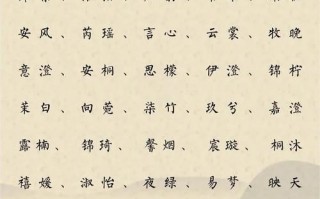 安风、芮瑶、言心、云裳、牧晚
意澄、安桐、思檬、伊澄、锦柠
茉白、向菀、柒竹、玖兮、嘉澄
露楠、锦琦、馨烟、宸璇、桐沐
禧媛、淑怡、夜绿、易梦、映天